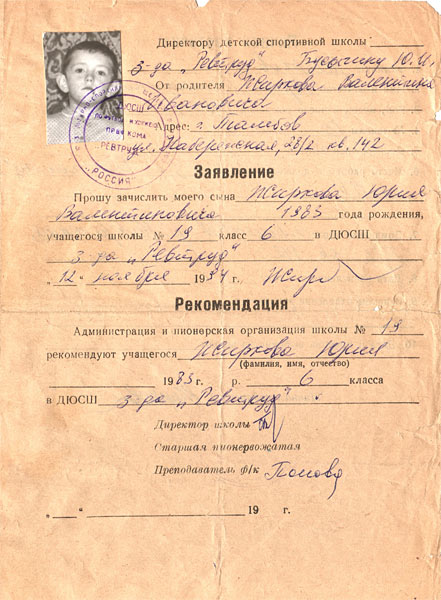 Директору детской спортивной школы
з-да „Ревтруд" Бусыгину Ю.И.
От родителя Жиркова Валентина
Ивановича
Адрес: г. Тамбов
ул. Набережная, 28/2 кв. 142
ДЮСШ
РЕВТРУД
"РОССИЯ"
Заявление
Прошу зачислить моего сына Жиркова Юрия
Валентиновича 1983 года рождения,
учащегося школы № 19 класс 6 в ДЮСШ
з-да „Ревтруд"
„12" ноября 1994 г.
Рекомендация
Администрация и пионерская организация школы № 19
рекомендуют учащегося Жиркова Юрия
(фамилия, имя, отчество)
1983 г. р. 6 класса
в ДЮСШ з-да „Ревтруд" .
Директор школы
Старшая пионервожатая
Преподаватель ф/к Попова
„ " 19 г.